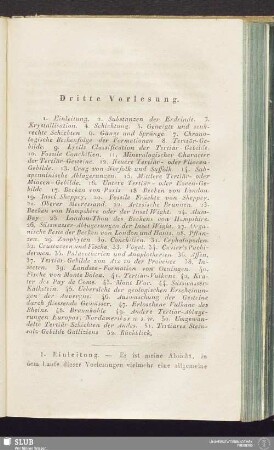 Dritte Vorlesung.
1. Einleitung. 2. Substanzen der Erdrinde. 3.
Krystallisation. 4. Schichtung. 5. Geneigte und senk-
rechte Schichten 6. Gänge und Sprünge. 7. Chrono-
logische Reihenfolge der Formationen 8 Tertiär-Ge-
bilde. 9. Lyells Classification der Tertiär Gebilde.
10. Fossile Conchilien. 11. Mineralogischer Character
der Tertiär-Gesteine. 12. Neuere Tertiär- oder Pliocen-
Gebilde. 13. Crag von Norfolk und Suffolk 14. Sub-
apenninische Ablagerungen. 15. Mittlere Tertiär- oder
Miocen-Gebilde. 16. Untere Tertiär- oder Eocen-Ge-
bilde. 17. Becken von Paris 18 Becken von London
19. Insel Sheppey. 20. Fossile Früchte von Sheppey.
21. Oberer Meeressand. 22. Artesische Brunnen. 23.
Becken von Hampshire oder der Insel Wight. 24. Alum-
Bay. 25. London-Thon des Beckens von Hampshire.
26. Süsswasser-Ablagerungen der Insel Wight. 27. Orga-
nische Reste der Becken von London und Hants. 28. Pflan-
zen. 29. Zoophyten. 30. Conchilien. 31. Cephalopoden
32. Crustaceen und Fische 33. Vögel. 34. Cuvier's Pachi-
dermen. 35. Palaeotherien und Anoplotherien 36. Affen.
37. Tertiär-Gebilde von Aix in der Provence 38. In-
secten. 39. Lacustre-Formation von Oeningen. 40.
Fische von Monte Bolca. 41. Tertiär-Vulcane. 42. Kra-
ter des Puy de Come. 43. Mont D'or. 44. Süsswasser-
Kalkstein. 45. Uebersicht der geologischen Erscheinun-
gen der Auvergne. 46. Auswaschung der Gesteine
durch fliessende Gewässer. 47. Erloschene Vulkane des
Rheins. 48. Braunkohle 49. Andere Tertiär-Ablage-
rungen Europas, Nordamerikas u s w. 50. Umgewan-
delte Tertiär Schichten der Andes. 51. Tertiäres Stein-
salz-Gebilde Galliziens 52. Rückblick.
1. Einleitung. — Es ist meine Absicht, in
dem Laufe dieser Vorlesungen vielmehr eine allgemeine
SLUB